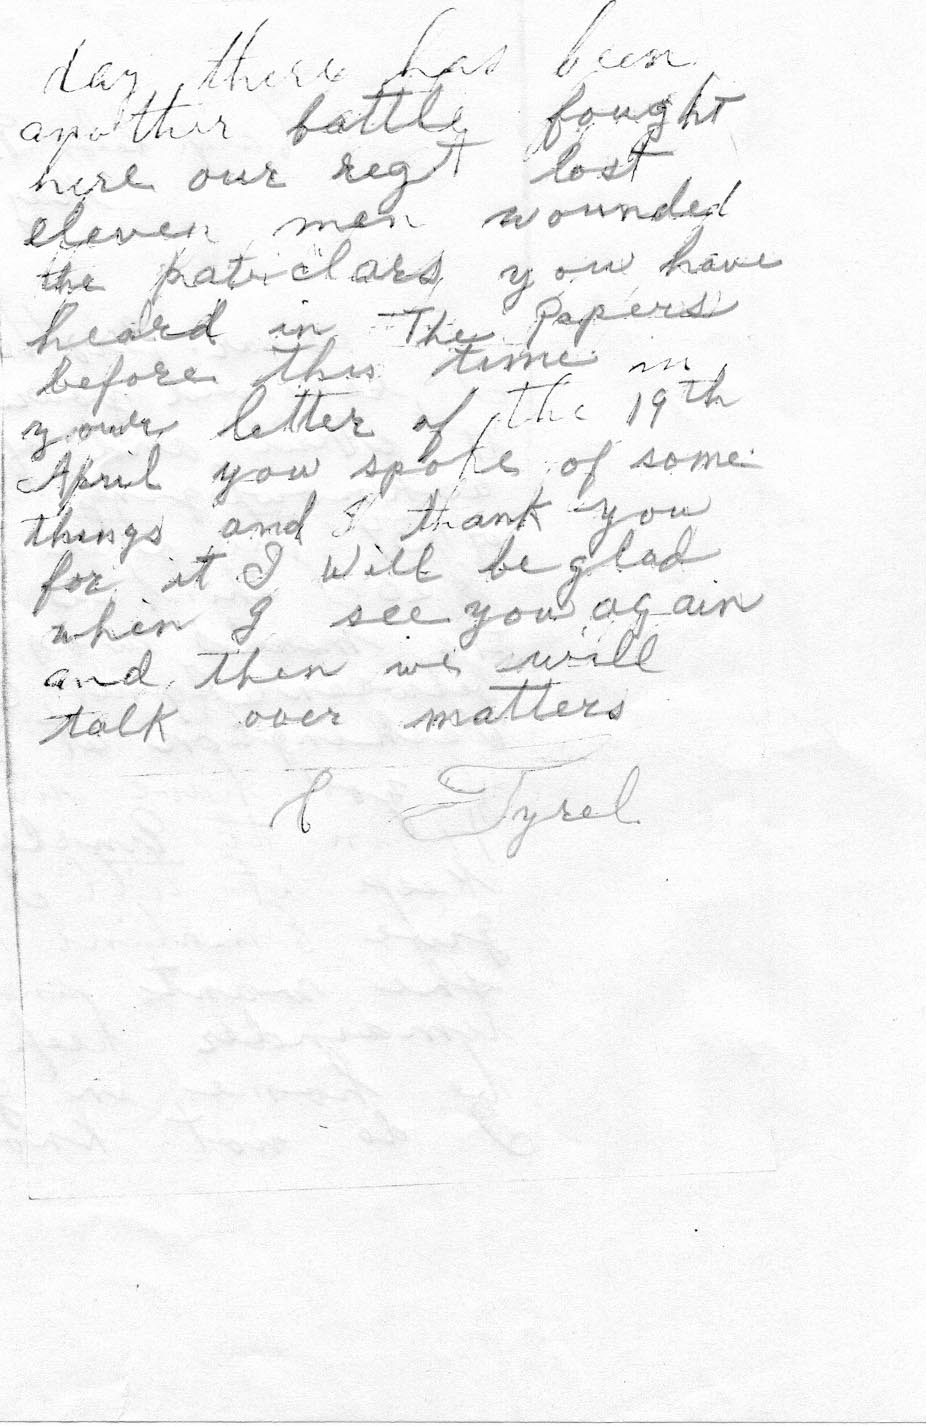 day there has been
another battle fought
here our regt lost
eleven men wounded
the paticlars you have
heard in The Papers
before this time in
your letter of the 19th
April you spoke of some
things and I thank you
for it I will be glad
when I see you again
and then we will
talk over matters
C Tyrel